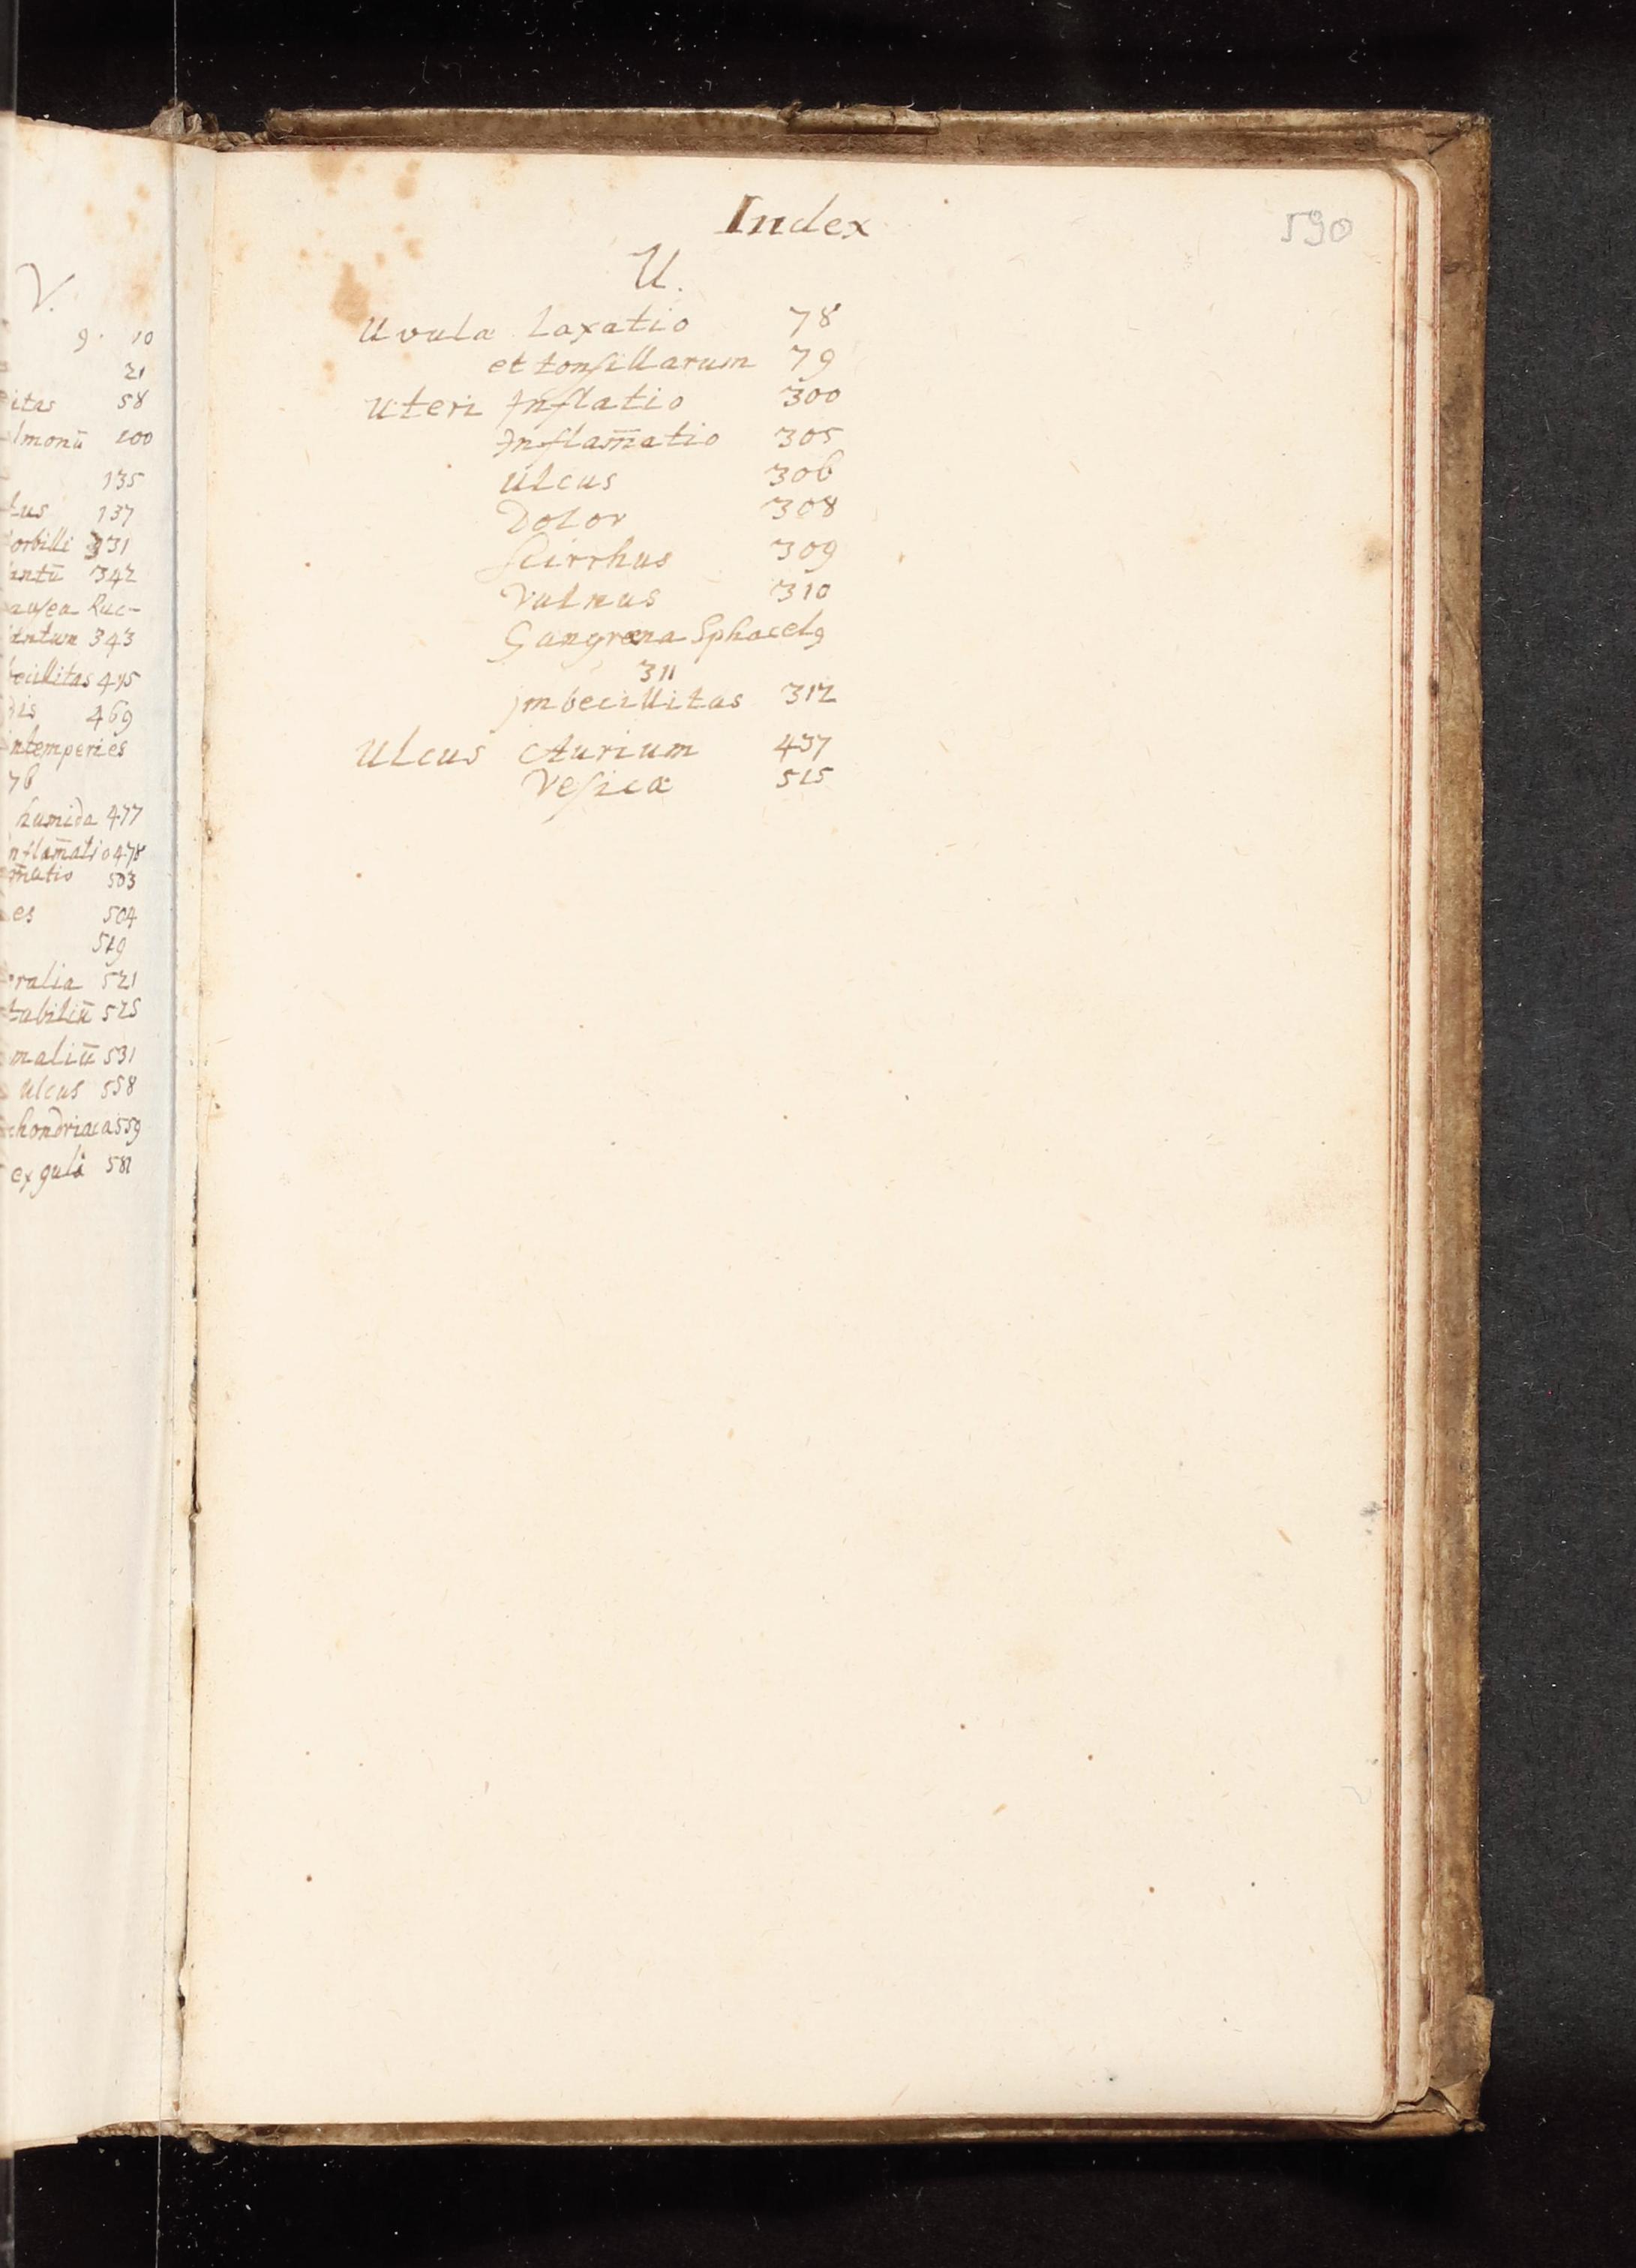 V.
9. 10
21
itas 58
lmonū 100
135
tus 137
orbilli 331
antū 342
ausea Ruc-
antum 343
becillitas 475
dis 469
ntemperies
76
humida 477
nflam̄atio 478
m̄atio 503
es 504
519
ralia 521
tabiliū 525
maliū 531
ulcus 558
chondriaca 559
ex gula 581
Index
590
U.
Uvulæ Laxatio 78
et tonſillarum 79
Uteri Inflatio 300
Inflam̄atio 305
Ulcus 306
Dolor 308
Scirrhus 309
Vulnus 310
Gangræna Sphacelꝯ
311
jmbecillitas 312
Ulcus Aurium 437
Veſicæ 515